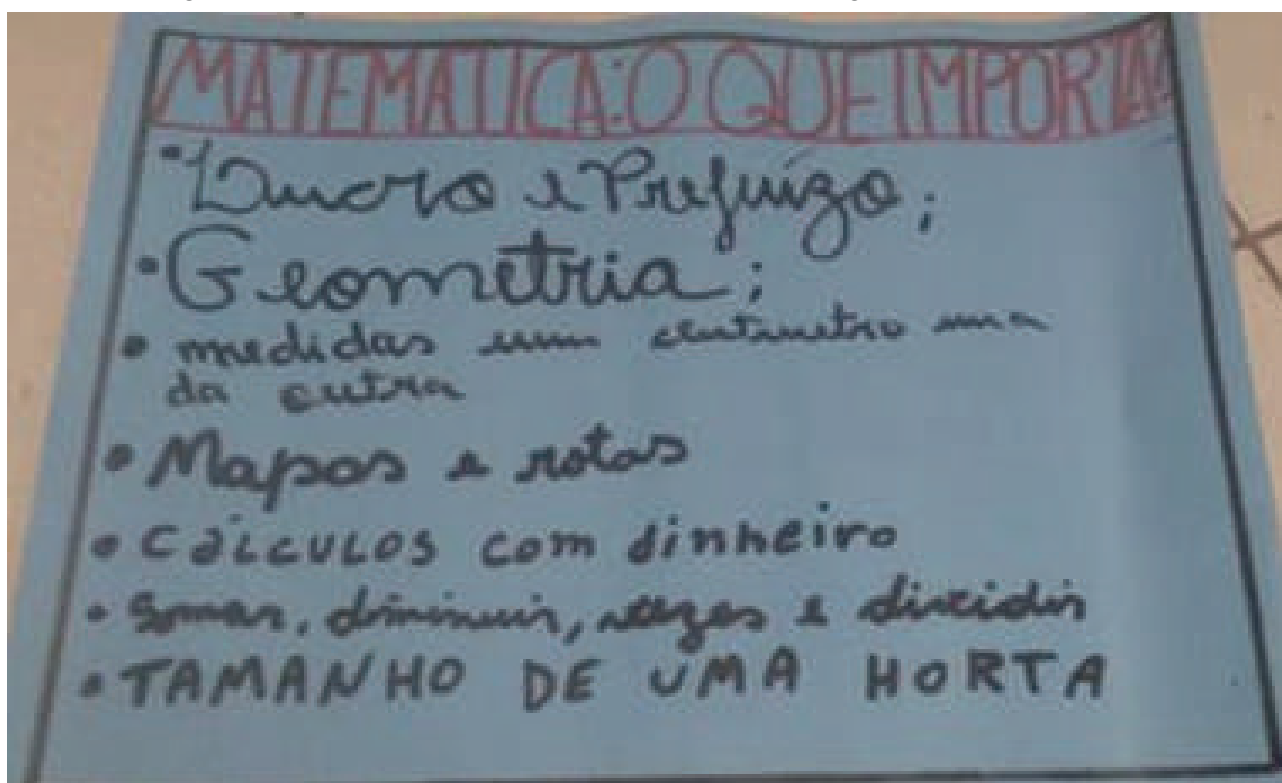 MATEMATICA: O QUE IMPORTA?
• Lucro e Prejuízo;
• Geometria;
• medidas um centimetro uma
da outra
• Mapas e rotas
• Cálculos com dinheiro
• Somar, diminuir, vezes e dividir
• TAMANHO DE UMA HORTA